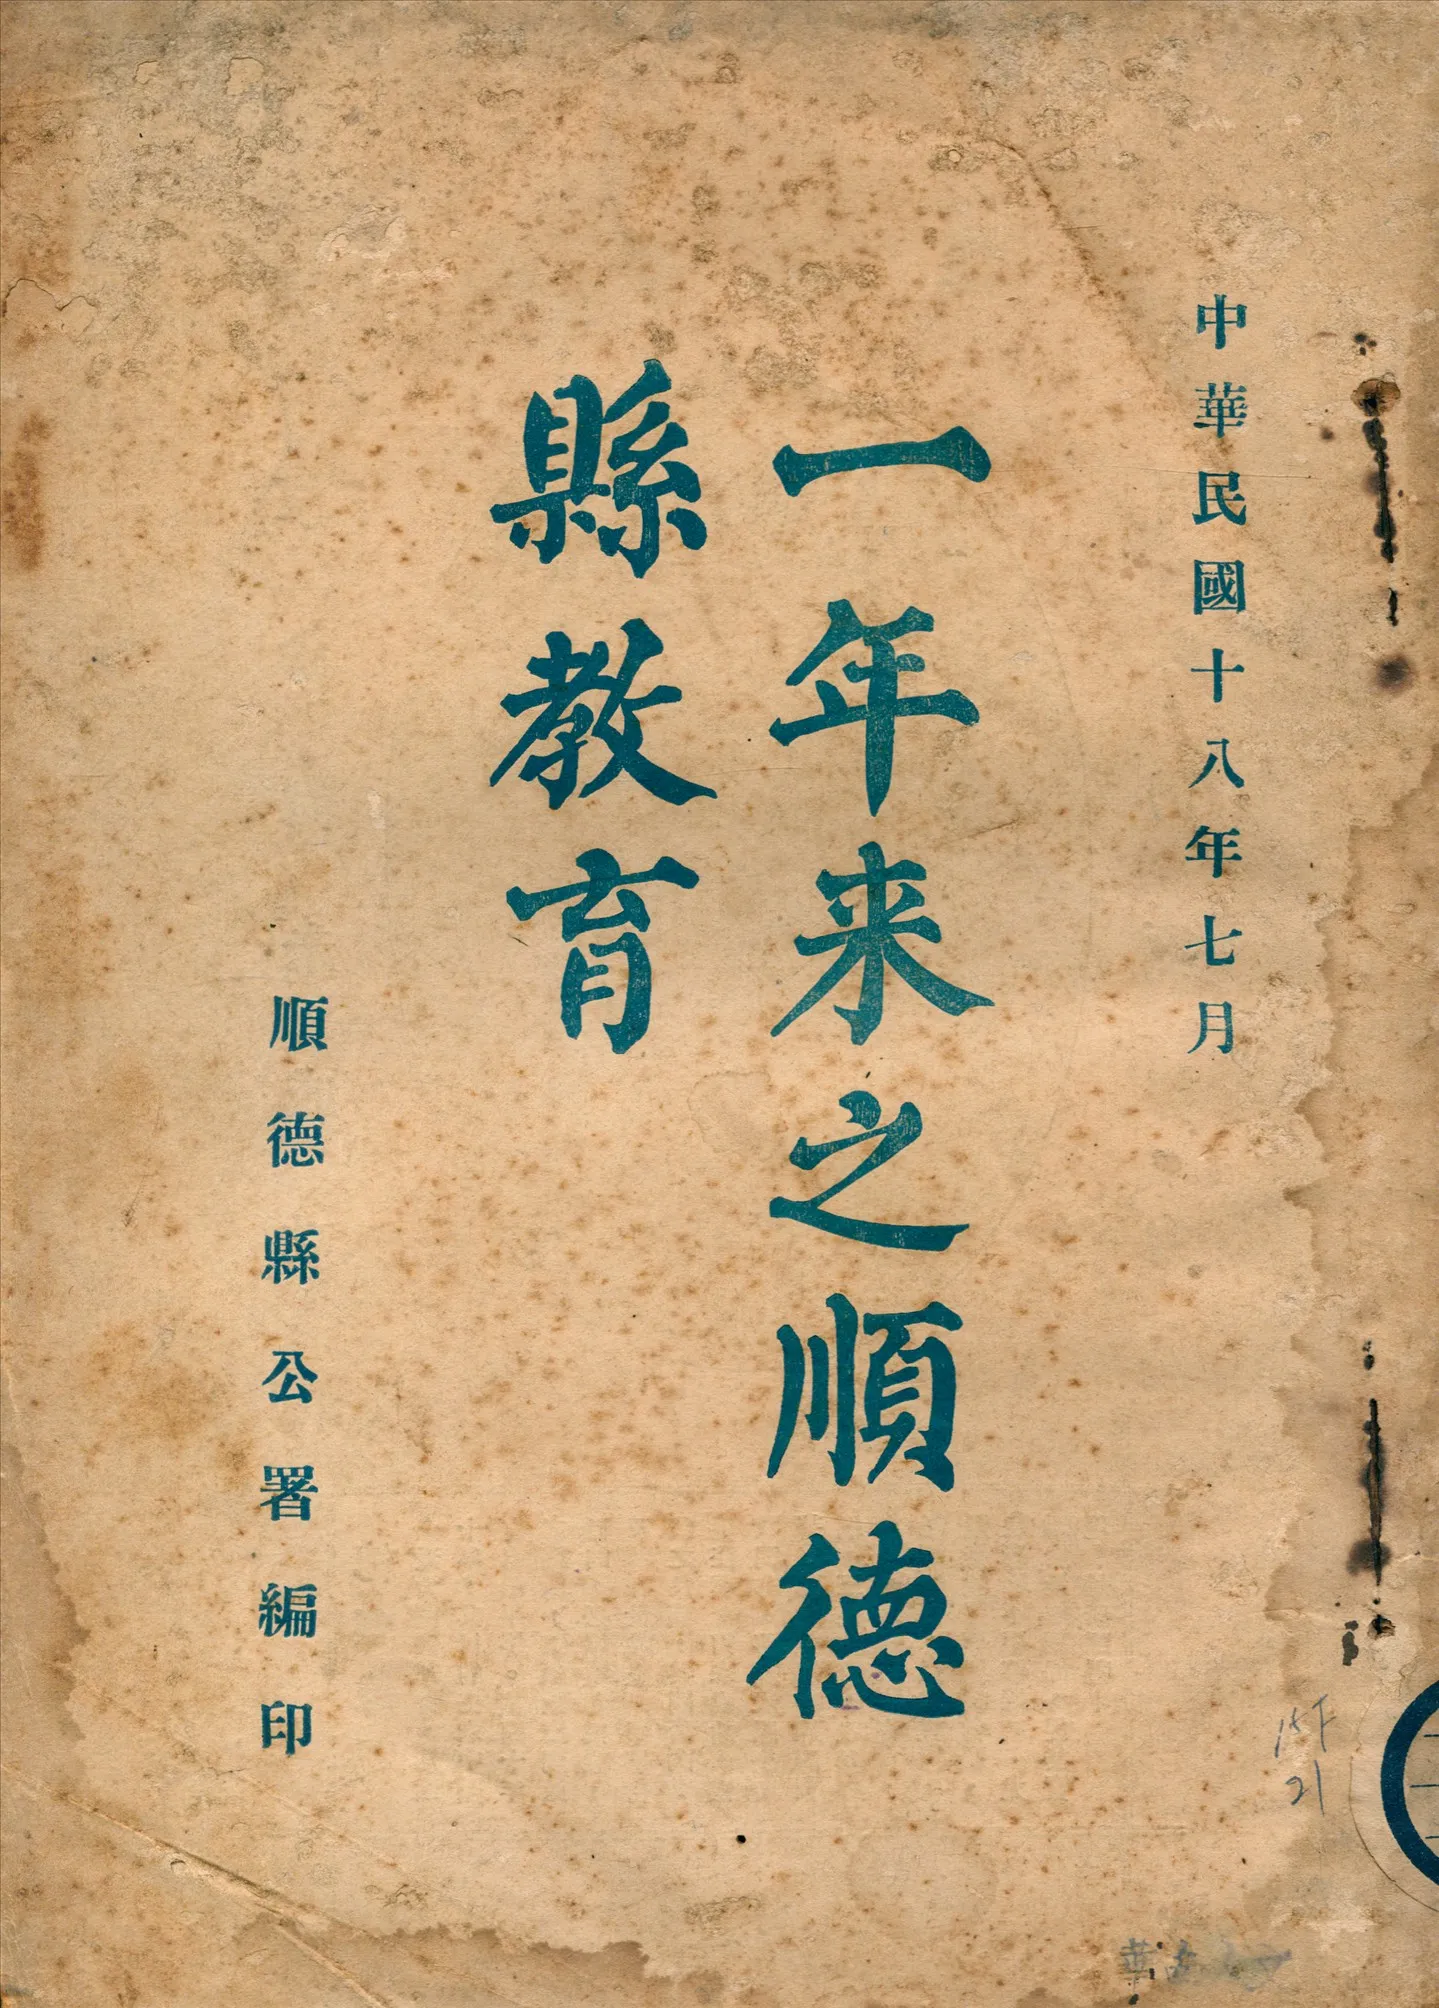 中華民國十八年七月
一年来之順德
縣教育
順德縣公署編印
21